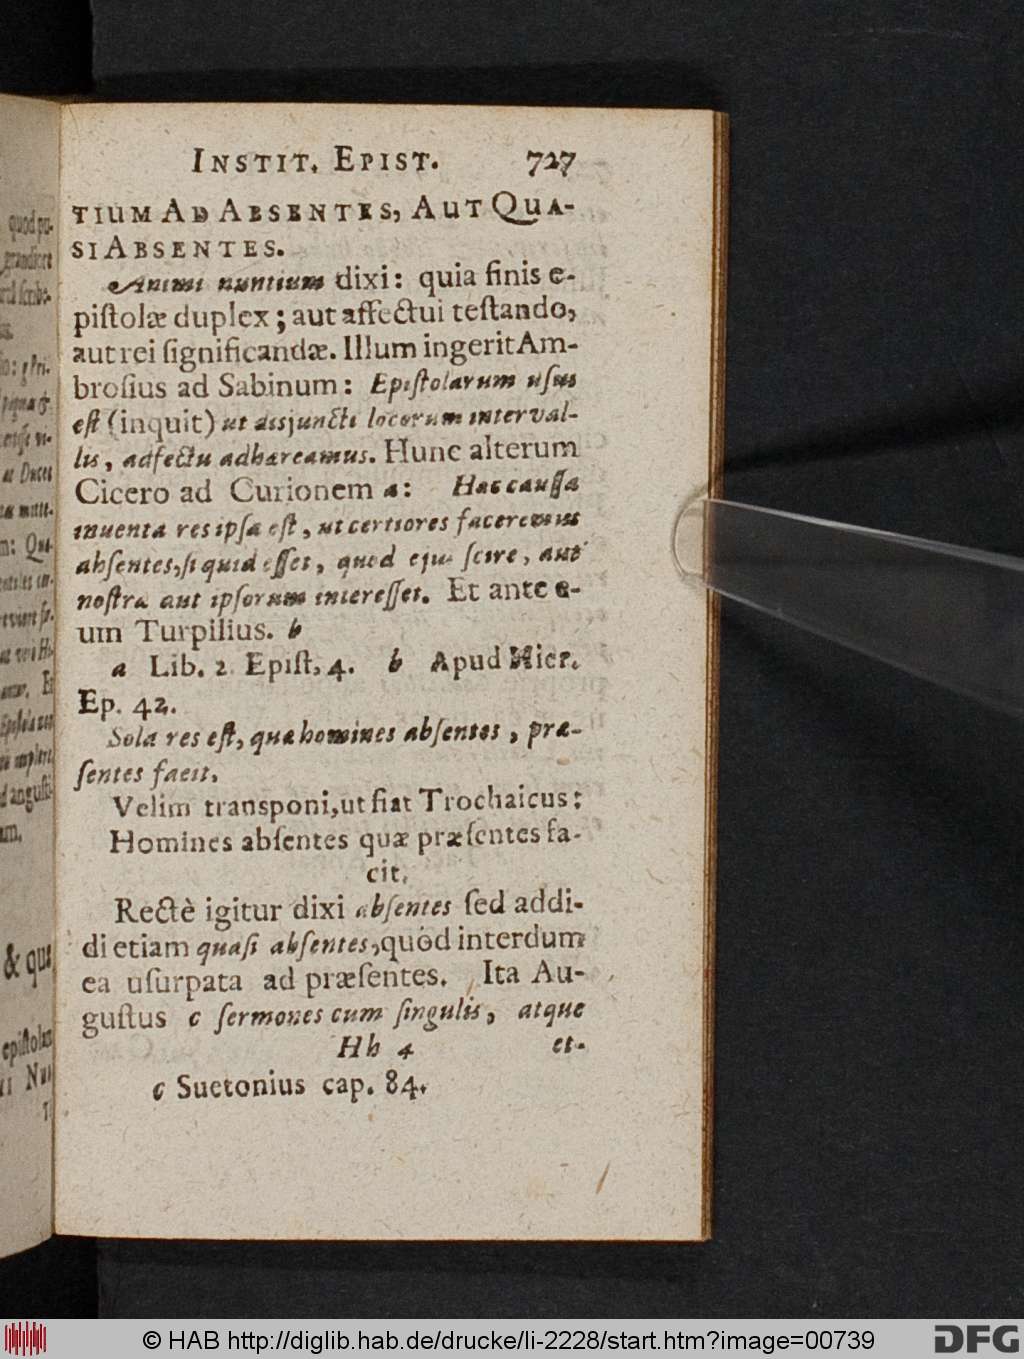 INSTIT. EPIST. 727
TIUM AD ABSENTES, AUT QUA-
SI ABSENTES.
Animi nuntium dixi: quia finis e-
piſtolæ duplex; aut affectui teſtando,
aut rei ſignificandæ. Illum ingerit Am-
broſius ad Sabinum: Epiſtolarum uſus
eſt (inquit) ut disjuncti locorum interval-
lis, adfectu adhæreamus. Hunc alterum
Cicero ad Curionem a: Hæc cauſſa
inuenta res ipſa eſt, ut certiores faceremus
abſentes, ſi quid eſſet, quod ejus ſcire, aut
noſtra aut ipſorum intereſſet. Et ante e-
um Turpilius. b
a Lib. 2 Epiſt, 4. b Apud Hier.
Ep. 42.
Sola res eſt, quæ homines abſentes, præ-
ſentes facit.
Velim transponi, ut fiat Trochaicus:
Homines abſentes quæ præſentes fa-
cit.
Rectè igitur dixi abſentes ſed addi-
di etiam quaſi abſentes, quòd interdum
ea uſurpata ad præſentes. Ita Au-
guſtus c ſermones cum ſingulis, atque
Hh 4 et-
c Suetonius cap. 84.
quod po-
& quæ
epiſtolam
© HAB http://diglib.hab.de/drucke/li-2228/start.htm?image=00739
DFG